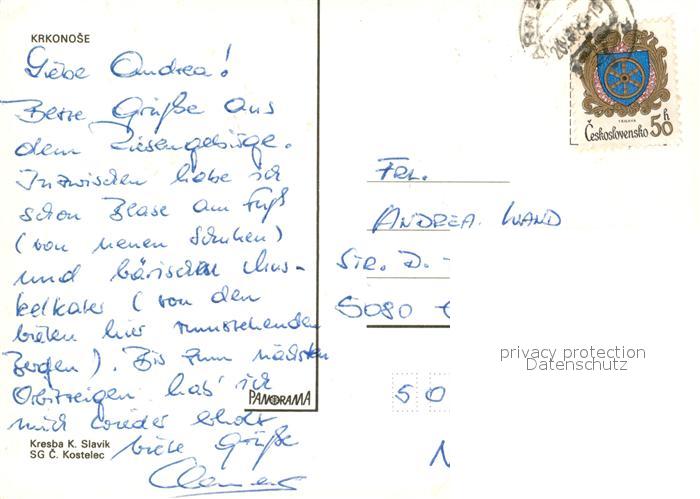 KRKONOŠE
Liebe Andrea!
Beste Grüße aus
dem Riesengebirge.
Inzwischen habe ich
schon Blase am Fuß
(von neuen Schuhen)
und bärischen Mus-
kelkater (von den
vielen hier rumstehenden
Bergen). Bis zum nächsten
hab' ich
mich wieder erholt
Viele Grüße
Kresba K. Slavík
SG Č. Kostelec
PANORAMA
Československo 50 h
FRL.
ANDREA WAND
STR. D.
5080
50
privacy protection
Datenschutz